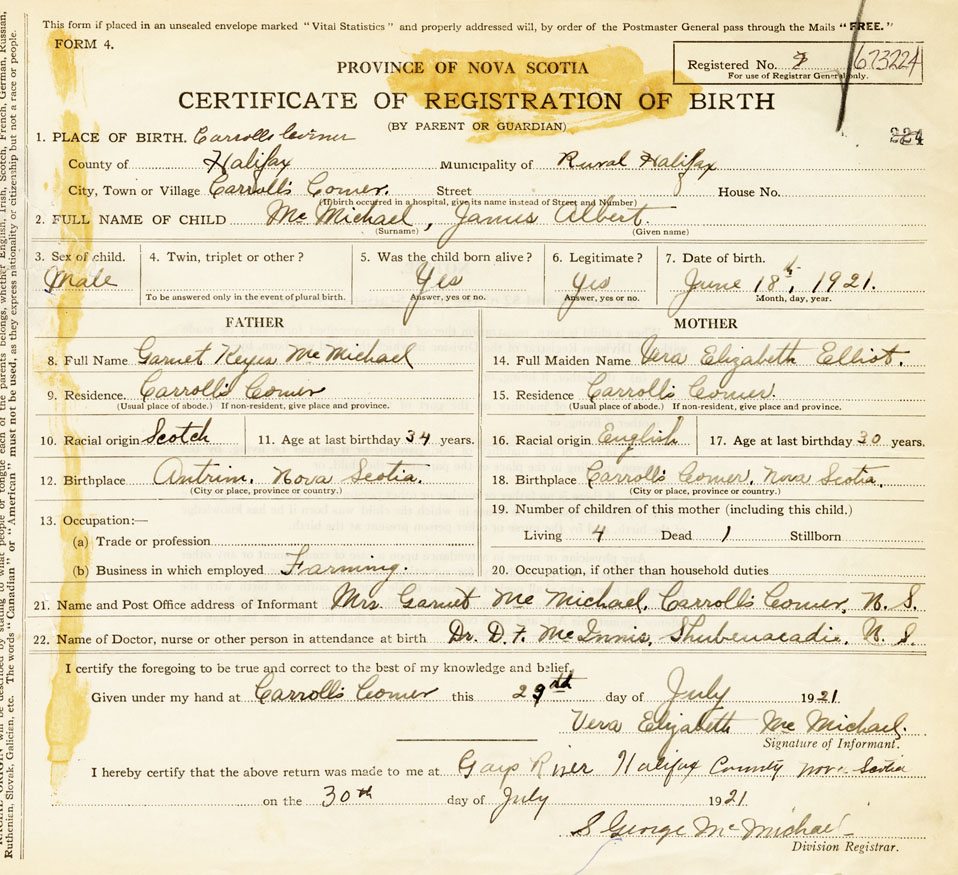 This form if placed in an unsealed envelope marked "Vital Statistics" and properly addressed will, by order of the Postmaster General pass through the Mails "FREE."
FORM 4.
Registered No. 673224
For use of Registrar General only.
PROVINCE OF NOVA SCOTIA
CERTIFICATE OF REGISTRATION OF BIRTH
(BY PARENT OR GUARDIAN)
224
1. PLACE OF BIRTH. Carrolls Corner
County of Halifax Municipality of Rural Halifax
City, Town or Village Carroll's Corner. Street House No.
(If birth occurred in a hospital, give its name instead of Street and Number)
2. FULL NAME OF CHILD Mc Michael, James Albert.
(Surname) (Given name)
3. Sex of child. 4. Twin, triplet or other? 5. Was the child born alive? 6. Legitimate? 7. Date of birth.
Male Yes Yes June 18th, 1921.
To be answered only in the event of plural birth. Answer, yes or no. Answer, yes or no. Month, day, year.
FATHER MOTHER
8. Full Name Garnet Keyes Mc Michael 14. Full Maiden Name Vera Elizabeth Elliot.
9. Residence. Carroll's Corner 15. Residence Carroll's Corner.
(Usual place of abode.) If non-resident, give place and province. (Usual place of abode.) If non-resident, give place and province.
10. Racial origin Scotch 11. Age at last birthday 34 years. 16. Racial origin English 17. Age at last birthday 30 years.
12. Birthplace Antrim, Nova Scotia. 18. Birthplace Carroll's Corner, Nova Scotia.
(City or place, province or country.) (City or place, province or country.)
13. Occupation:— 19. Number of children of this mother (including this child.)
(a) Trade or profession Living 4 Dead 1 Stillborn
(b) Business in which employed Farming. 20. Occupation, if other than household duties
21. Name and Post Office address of Informant Mrs. Garnet Mc Michael, Carroll's Corner, N. S.
22. Name of Doctor, nurse or other person in attendance at birth Dr. D. F. McInnis, Shubenacadie, N. S.
I certify the foregoing to be true and correct to the best of my knowledge and belief.
Given under my hand at Carroll's Corner this 29th day of July 1921.
Vera Elizabeth Mc Michael.
Signature of Informant.
I hereby certify that the above return was made to me at Gays River Halifax County Nova Scotia
on the 30th day of July 1921
S George McMichael
Division Registrar.
will be described by stating to what people or tongue each of the parents belongs, whether English, Irish, Scotch, French, German, Russian,
Ruthenian, Slovak, Galicien, etc. The words "Canadian" or "American" must not be used, as they express nationality or citizenship but not a race or people.